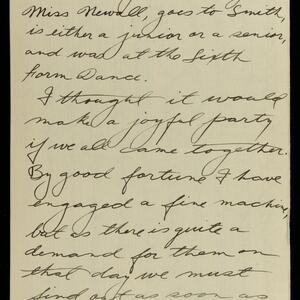 Miss Newall, goes to Smith,
is either a junior or a senior,
and was at the Sixth
Form Dance.
I thought it would
make a joyful party
if we all came together.
By good fortune I have
engaged a fine machine,
but as there is quite a
demand for them on
that day we must
find out as soon as